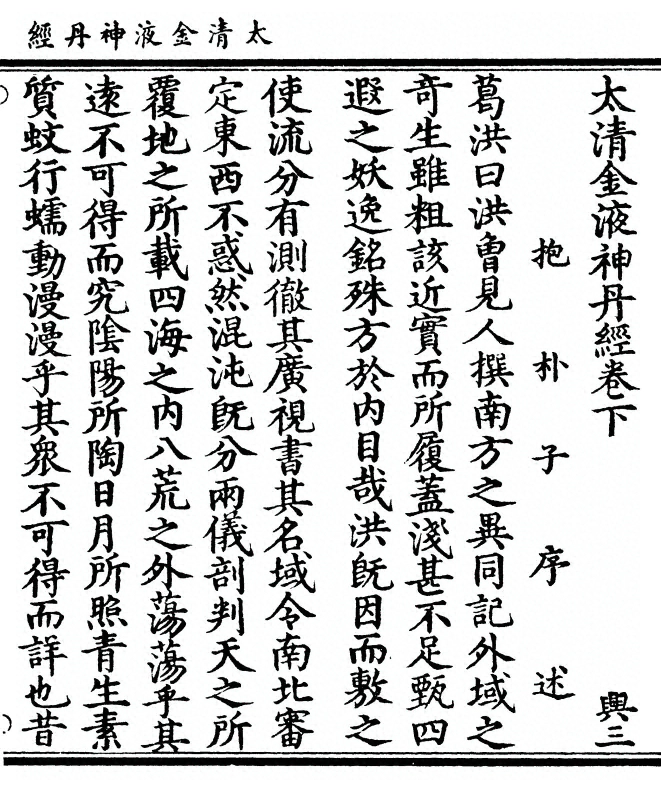 太清金液神丹經
太清金液神丹經卷下
興三
抱朴子序述
葛洪曰洪曾見人撰南方之異同記外域之
竒生雖粗該近實而所履蓋淺甚不足甄四
遐之妖逸銘殊方於内目哉洪旣因而敷之
使流分有測徹其廣視書其名域令南北審
定東西不惑然混沌旣分兩儀剖判天之所
覆地之所載四海之内八荒之外蕩蕩乎其
逺不可得而究陰陽所陶日月所照青生素
質蚊行蠕動漫漫乎其衆不可得而詳也昔